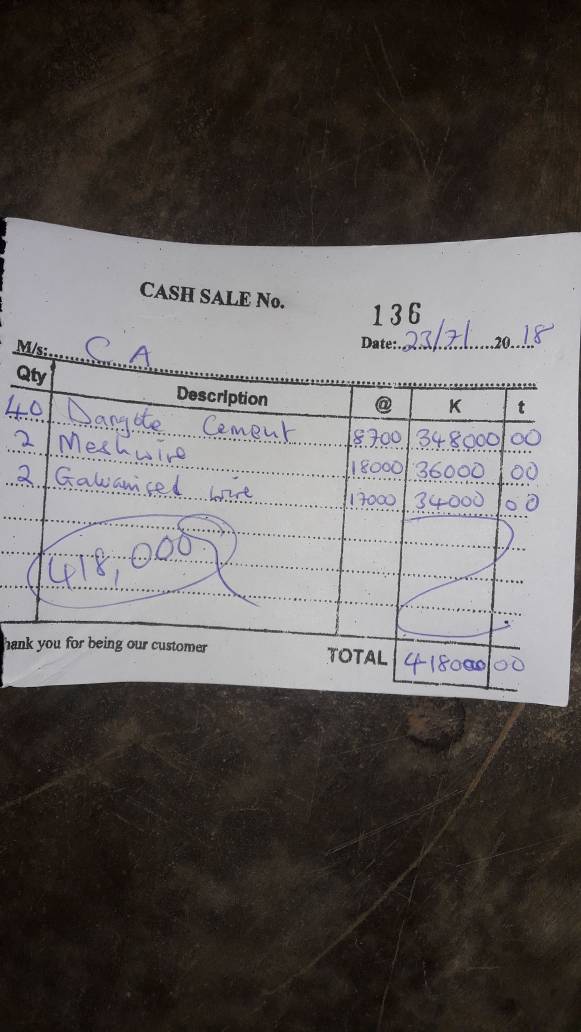 CASH SALE No. 136
Date: 23/7/ 2018
M/s: C A
Qty Description @ K t
40 Dangote Cement 8700 348000 00
2 Meshwire 18000 36000 00
2 Galvanised wire 17000 34000 00
418,000
hank you for being our customer
TOTAL 418000 00